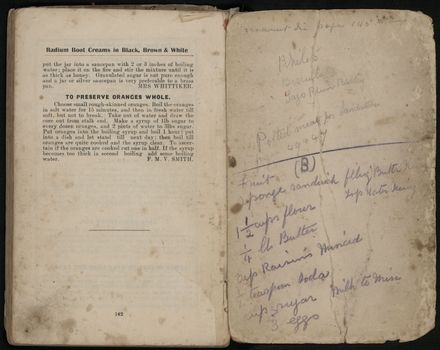 Radium Boot Creams in Black, Brown & White
put the jar into a saucepan with 2 or 3 inches of boiling
water; place it on the fire and stir the mixture until it is
as thick as honey. Granulated sugar is not pure enough
and a jar or silver saucepan is very preferable to a brass
pan. MRS WHITTIKER.
TO PRESERVE ORANGES WHOLE.
Choose small rough-skinned oranges. Boil the oranges
in salt water for 15 minutes, and then in fresh water till
soft, but not to break. Take out of water and draw the
core out from stalk end. Make a syrup of 1lb sugar to
every dozen oranges, and 2 pints of water to 3lbs sugar.
Put oranges into the boiling syrup and boil 1 hour; put
into a dish and let stand till next day; then boil till
oranges are quite cooked and the syrup clear. To ascer-
tain if the oranges are cooked cut one in half. If the syrup
becomes too thick in second boiling add some boiling
water. F. M. V. SMITH.
162
page 145
Potted meat for sandwiches
(B)
Fruit
sponge sandwich filling Butter
1 1/2 cups flour
1/4 lb Butter
cup Raisins Minced
teaspoon Soda
cup sugar Milk to Mix
3 eggs